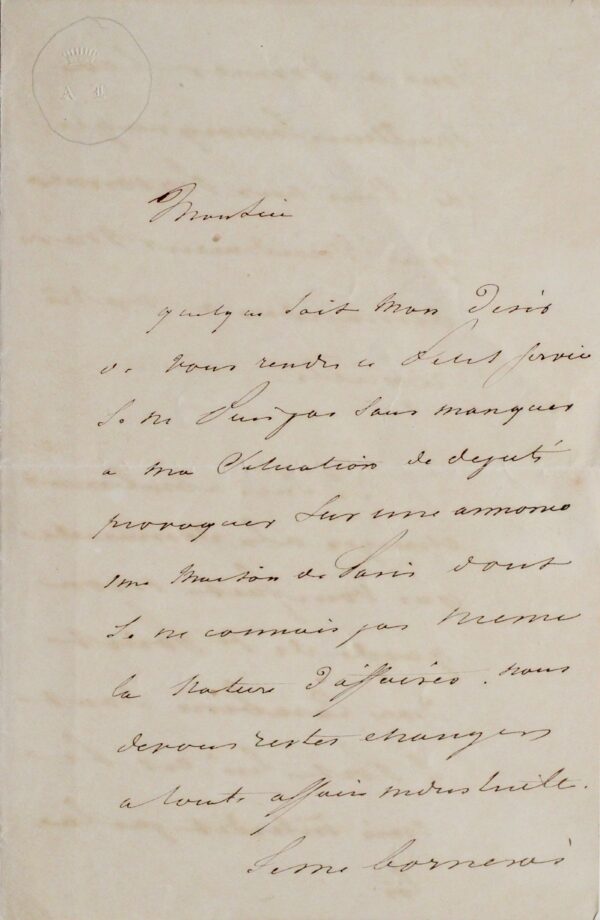 A L
Monsieur
quelque soit mon desir
de vous rendre ce Petit service
Je ne Puis pas sans manquer
a ma Situation de deputé
provoquer sur une annonce
une Maison de Paris dont
Je ne connais pas meme
la Nature d'affaires. nous
devons rester etrangers
a toute affaire industrielle.
Je me bornerais